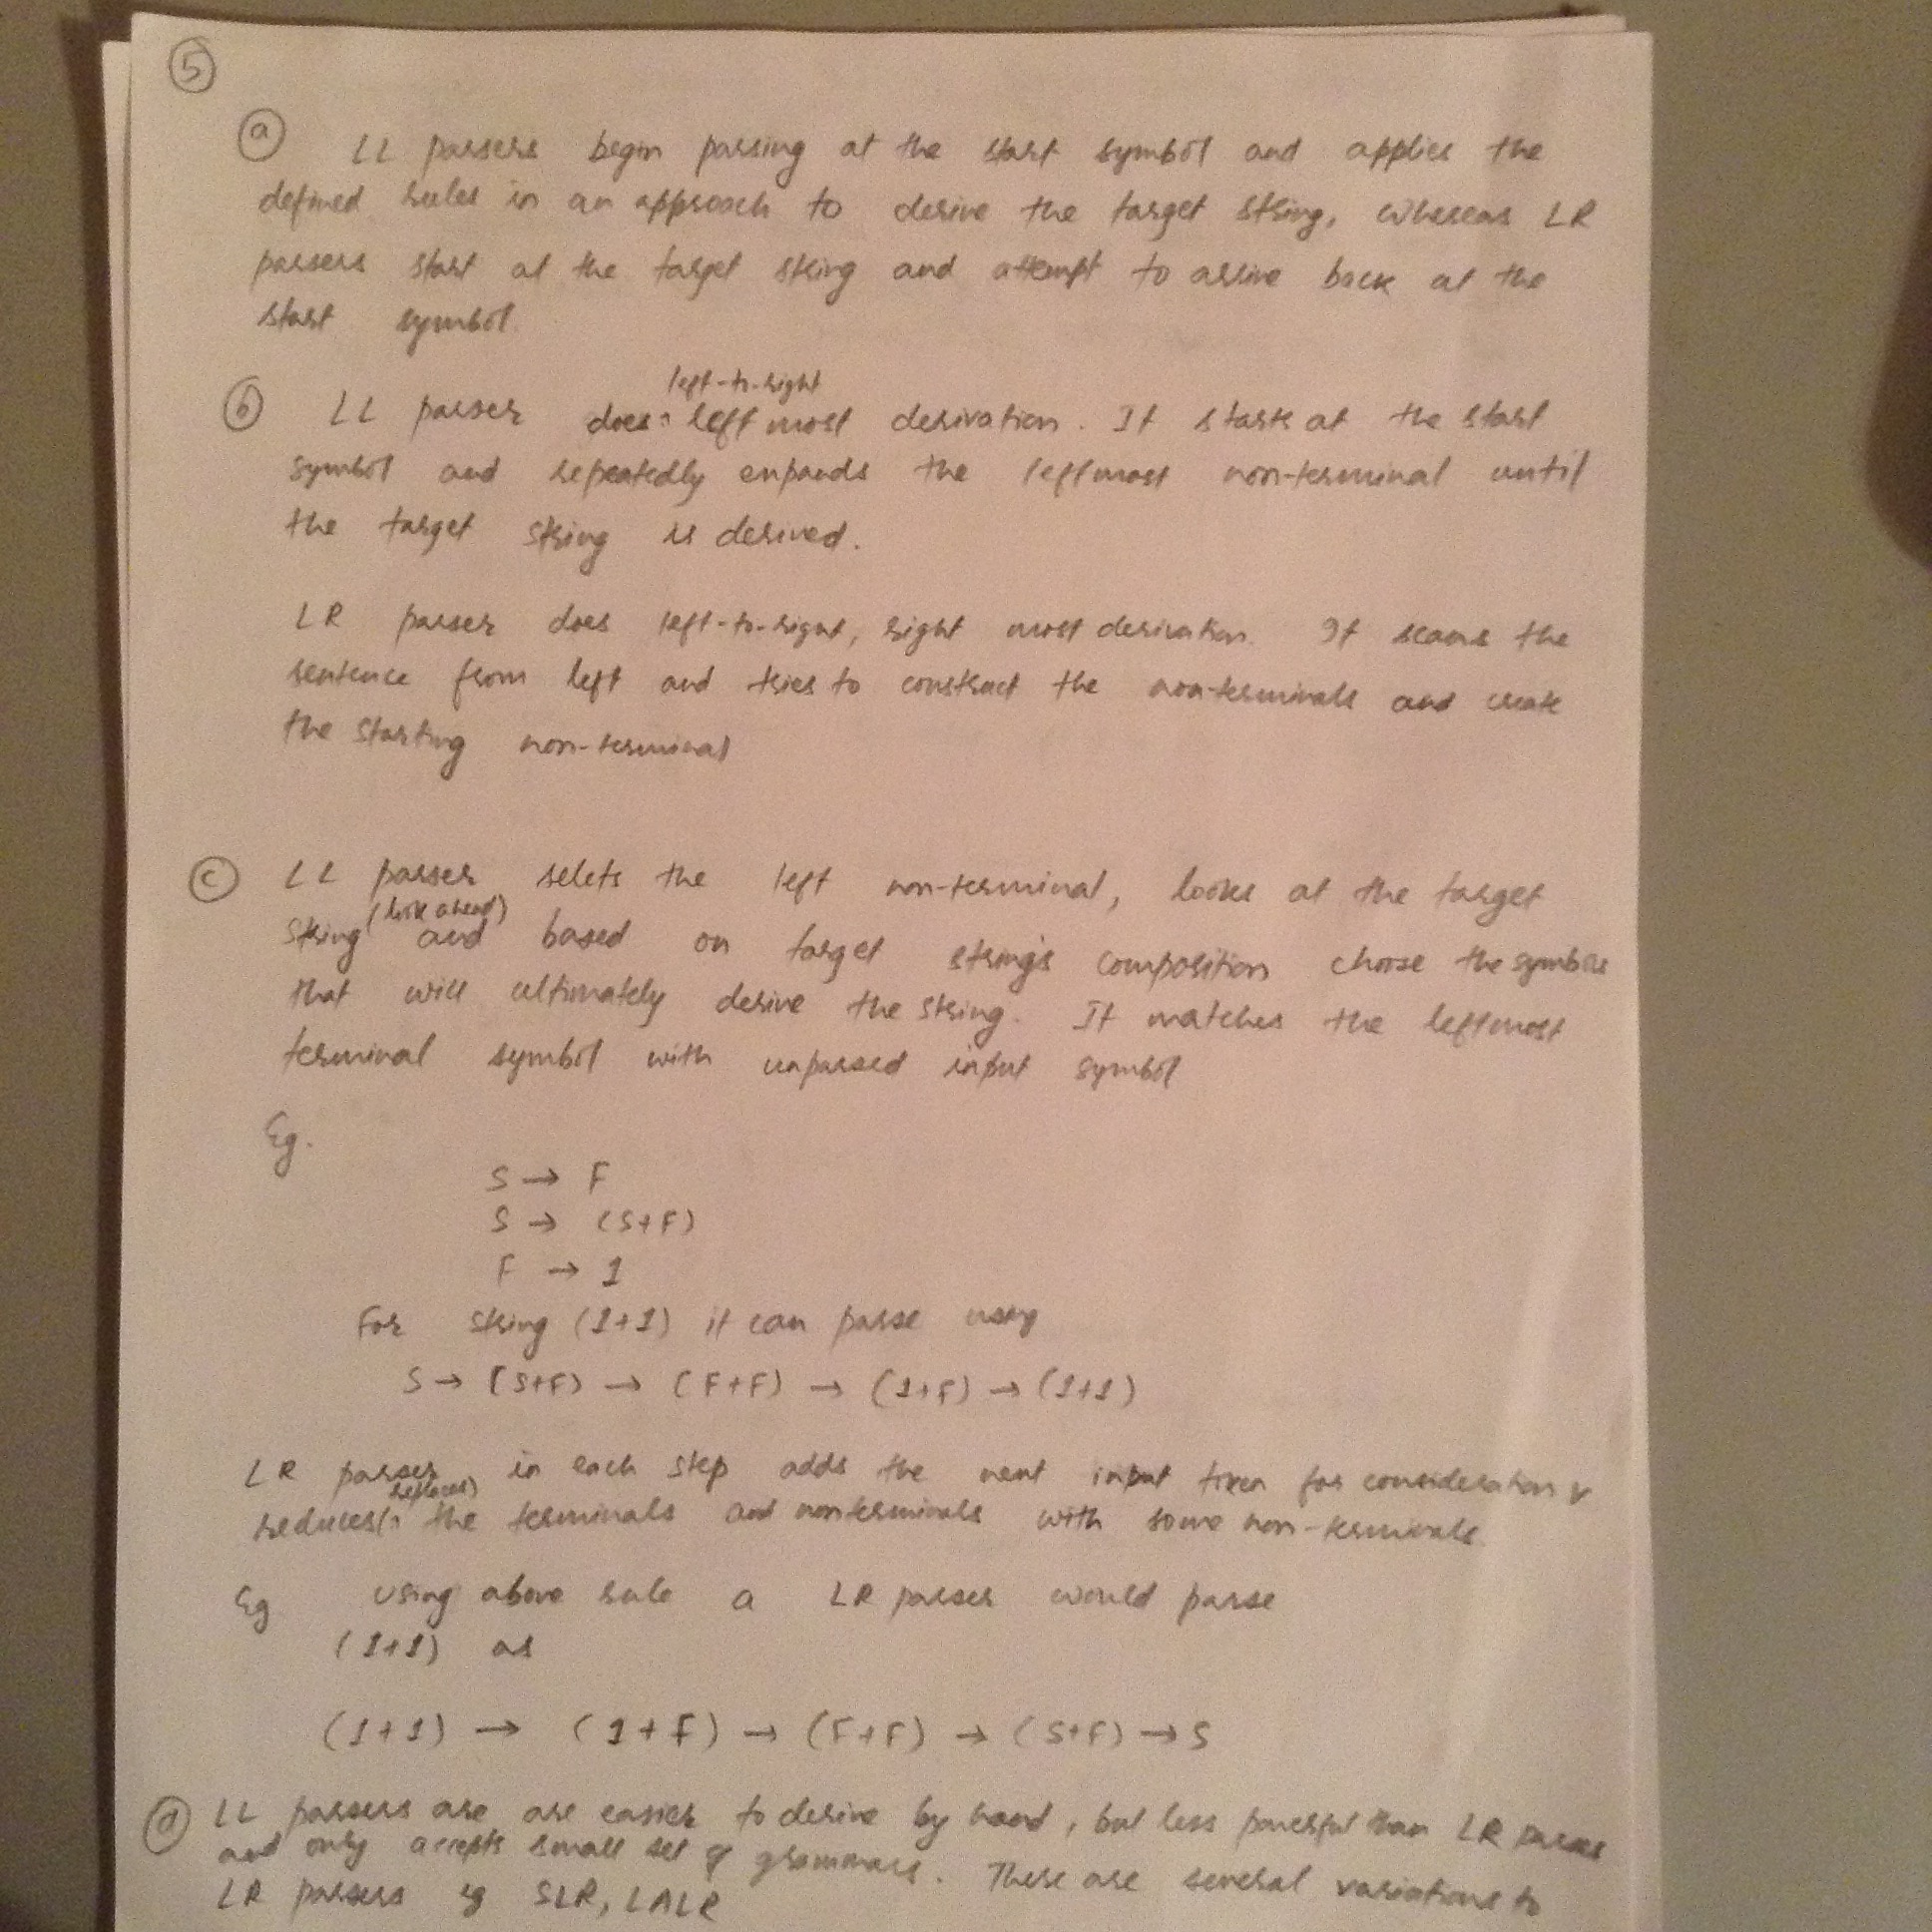 5
a LL parsers begin parsing at the start symbol and applies the
defined rules in an approach to derive the target string, whereas LR
parsers start at the target string and attempt to arrive back at the
start symbol.
left-to-right
b LL parser does leftmost derivation. It starts at the start
symbol and repeatedly expands the leftmost non-terminal until
the target string is derived.
LR parser does left-to-right, right most derivation. It scans the
sentence from left and tries to construct the non-terminals and create
the starting non-terminal
c LL parser selets the left non-terminal, looks at the target
(look ahead)
string and based on target string's composition choose the symbols
that will ultimately derive the string. It matches the leftmost
terminal symbol with unparsed input symbol
Eg.
S → F
S → (S+F)
F → 1
For string (1+1) it can parse using
S → (S+F) → (F+F) → (1+F) → (1+1)
LR parser in each step adds the next input token for consideration &
replaces)
reduces( the terminals and nonterminals with some non-terminals
Eg using above rule a LR parser would parse
(1+1) as
(1+1) → (1+F) → (F+F) → (S+F) → S
d LL parsers are are easier to derive by hand, but less powerful than LR parses
and only accepts small set of grammars. There are several variations to
LR parsers eg SLR, LALR